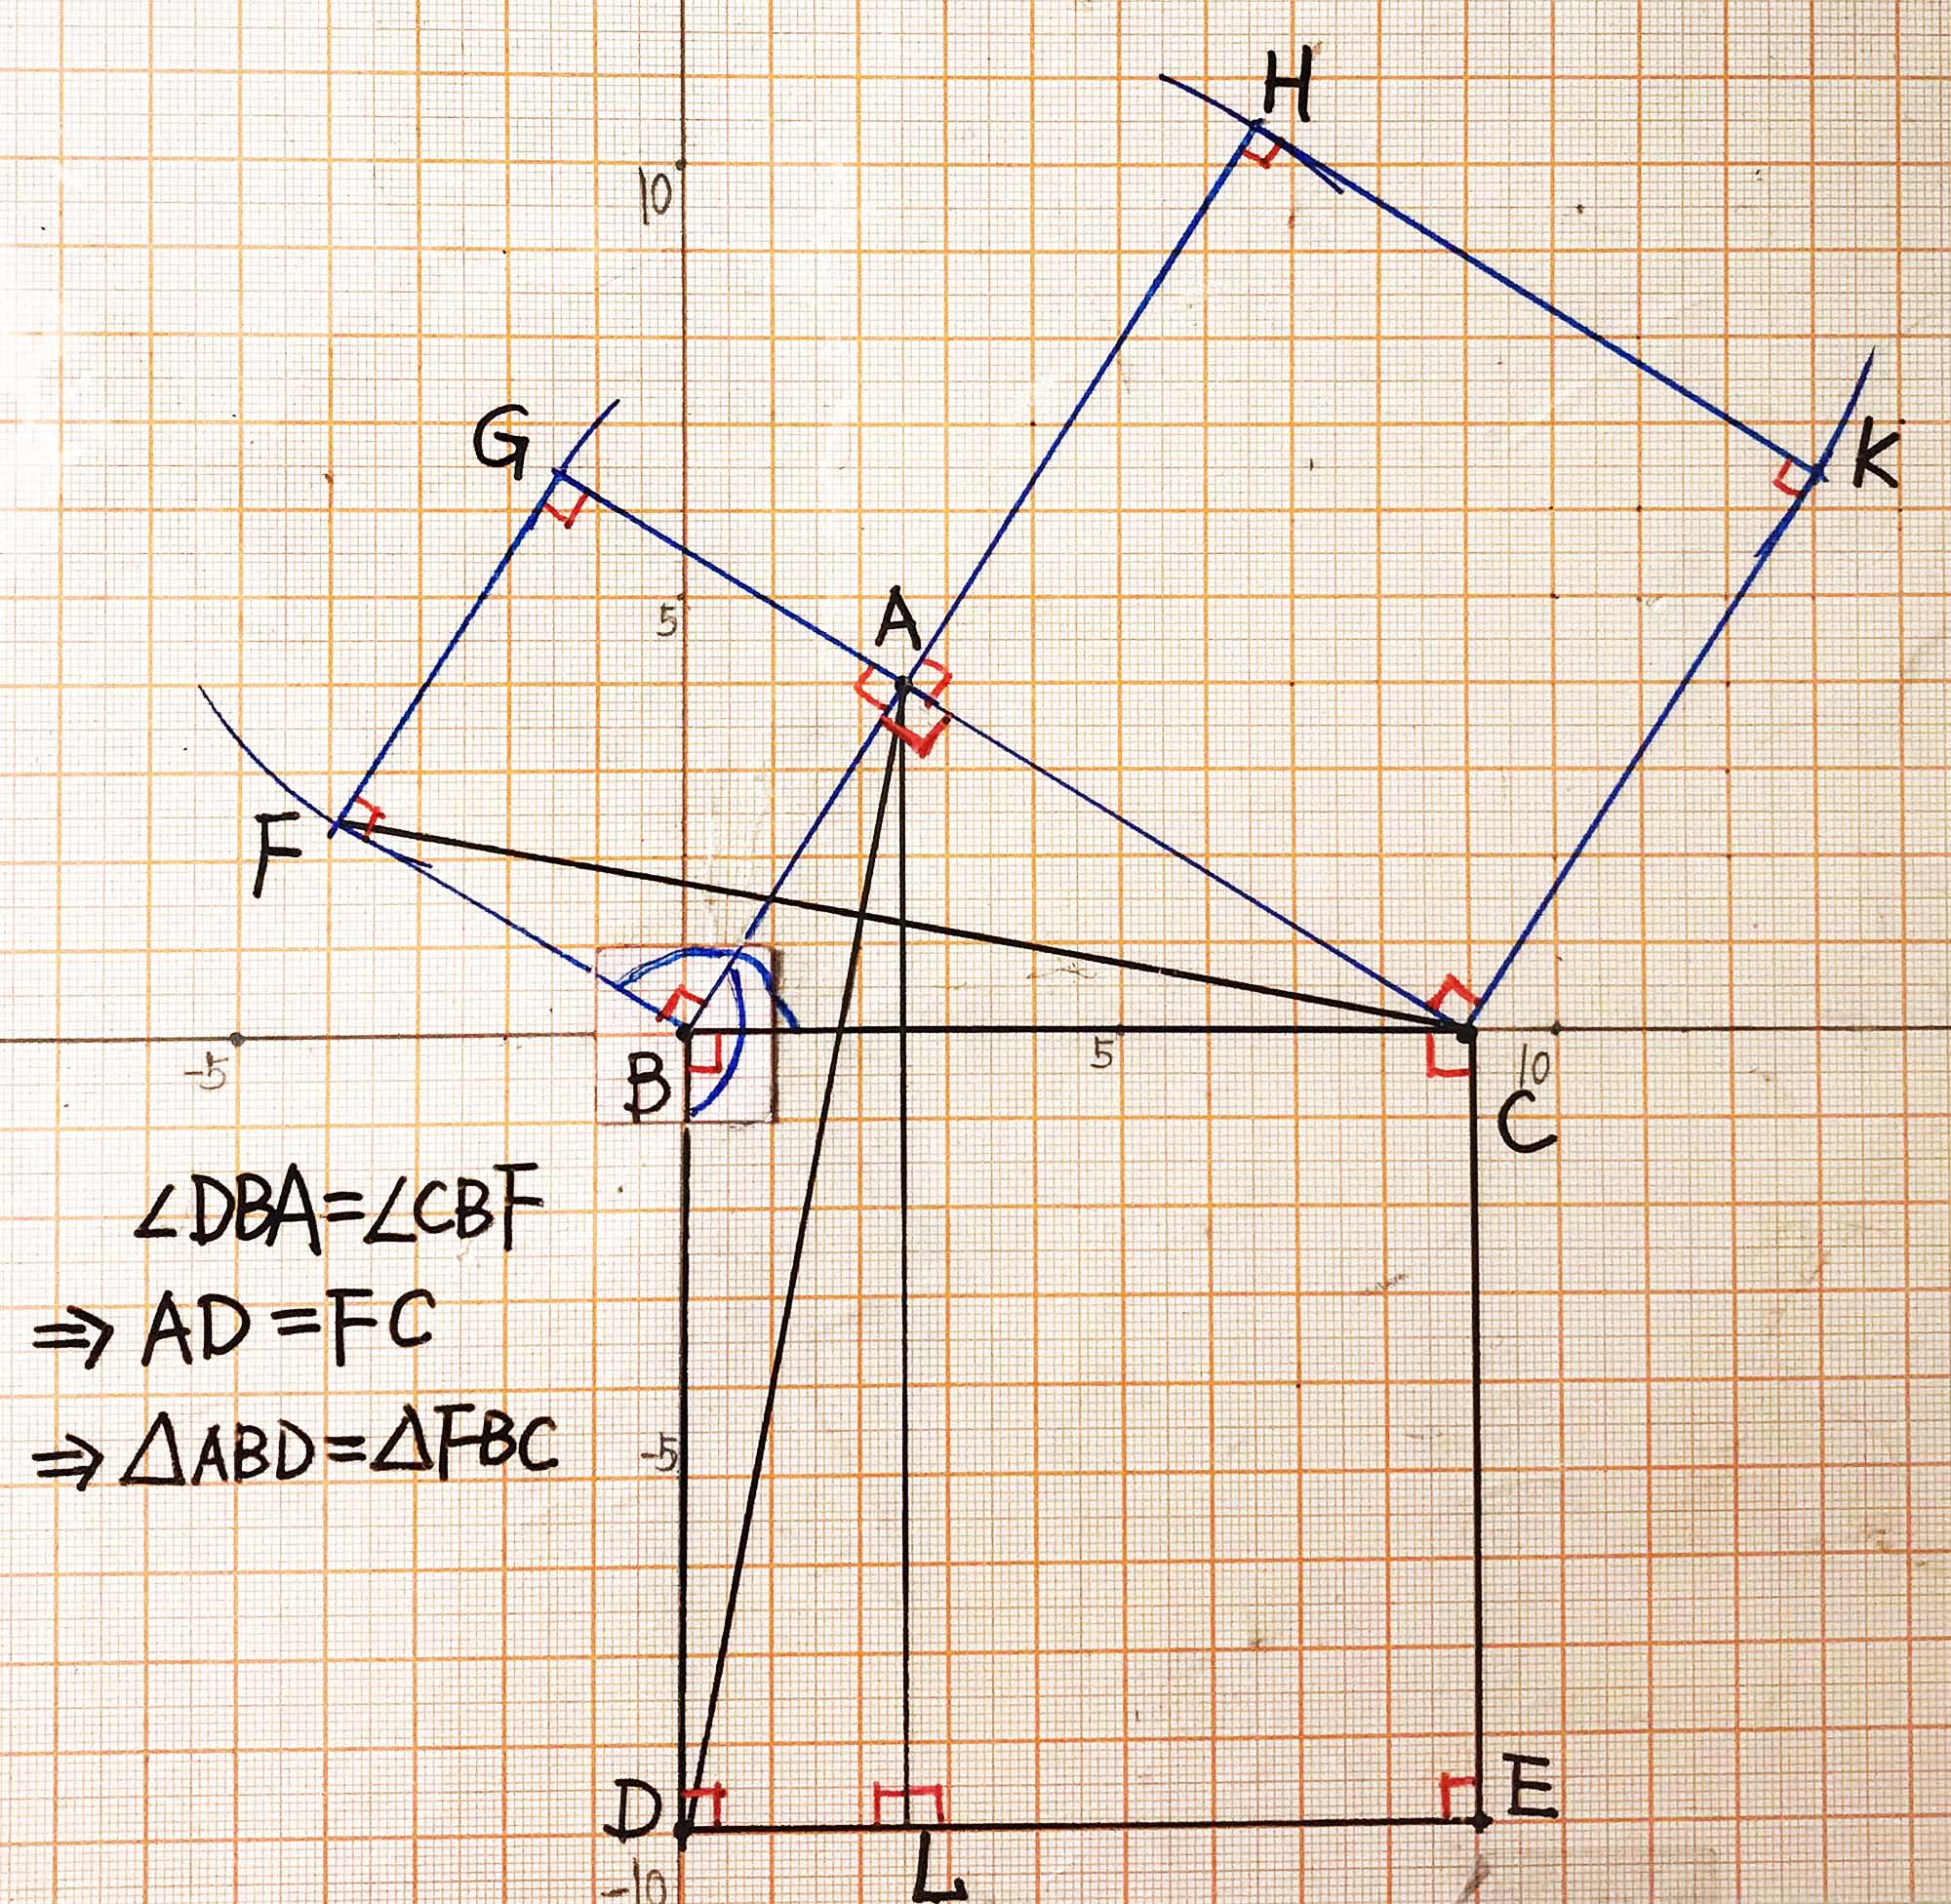 H
10
G
K
A
5
F
-5
B
5
10
C
∠DBA=∠CBF
⇒ AD=FC
⇒ △ABD=△FBC
-5
D
E
-10
L